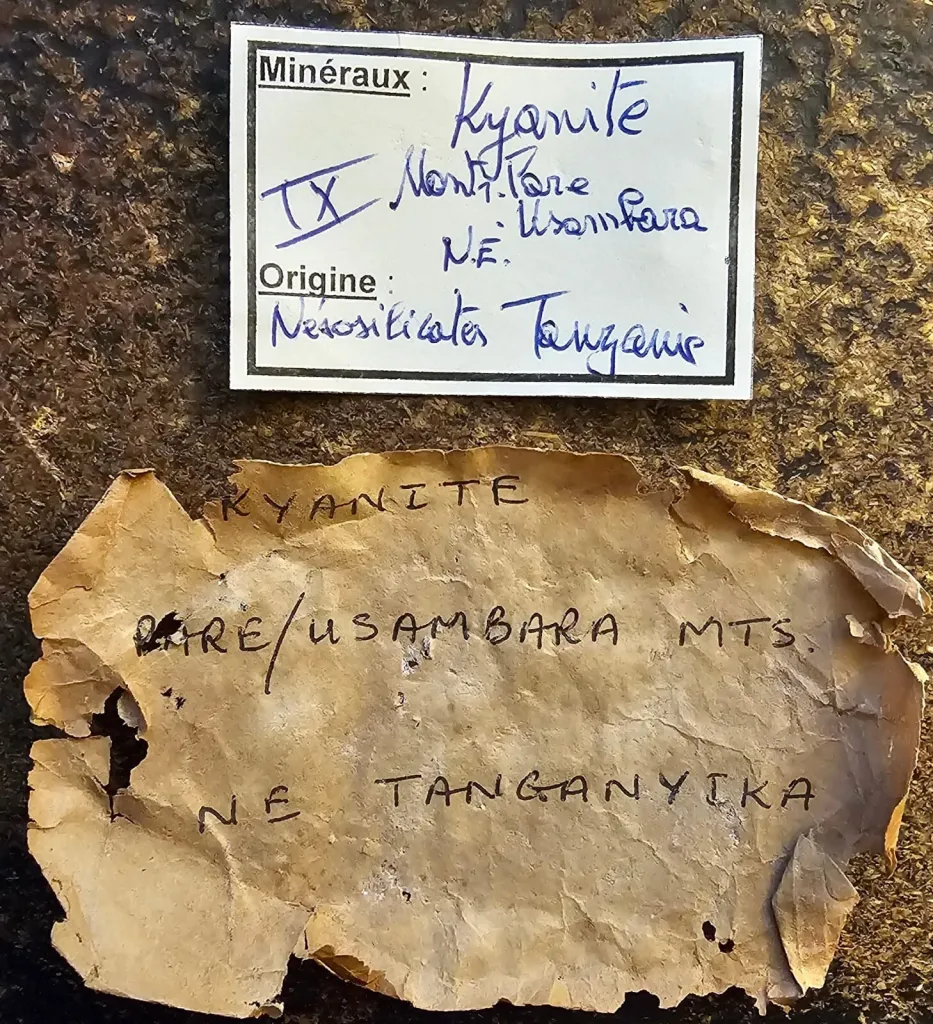 Minéraux :
Kyanite
IX Monts. Pare
Usambara
N.E.
Origine :
Nésosilicates Tanzanie
KYANITE
PARE/USAMBARA MTS.
NE TANGANYIKA